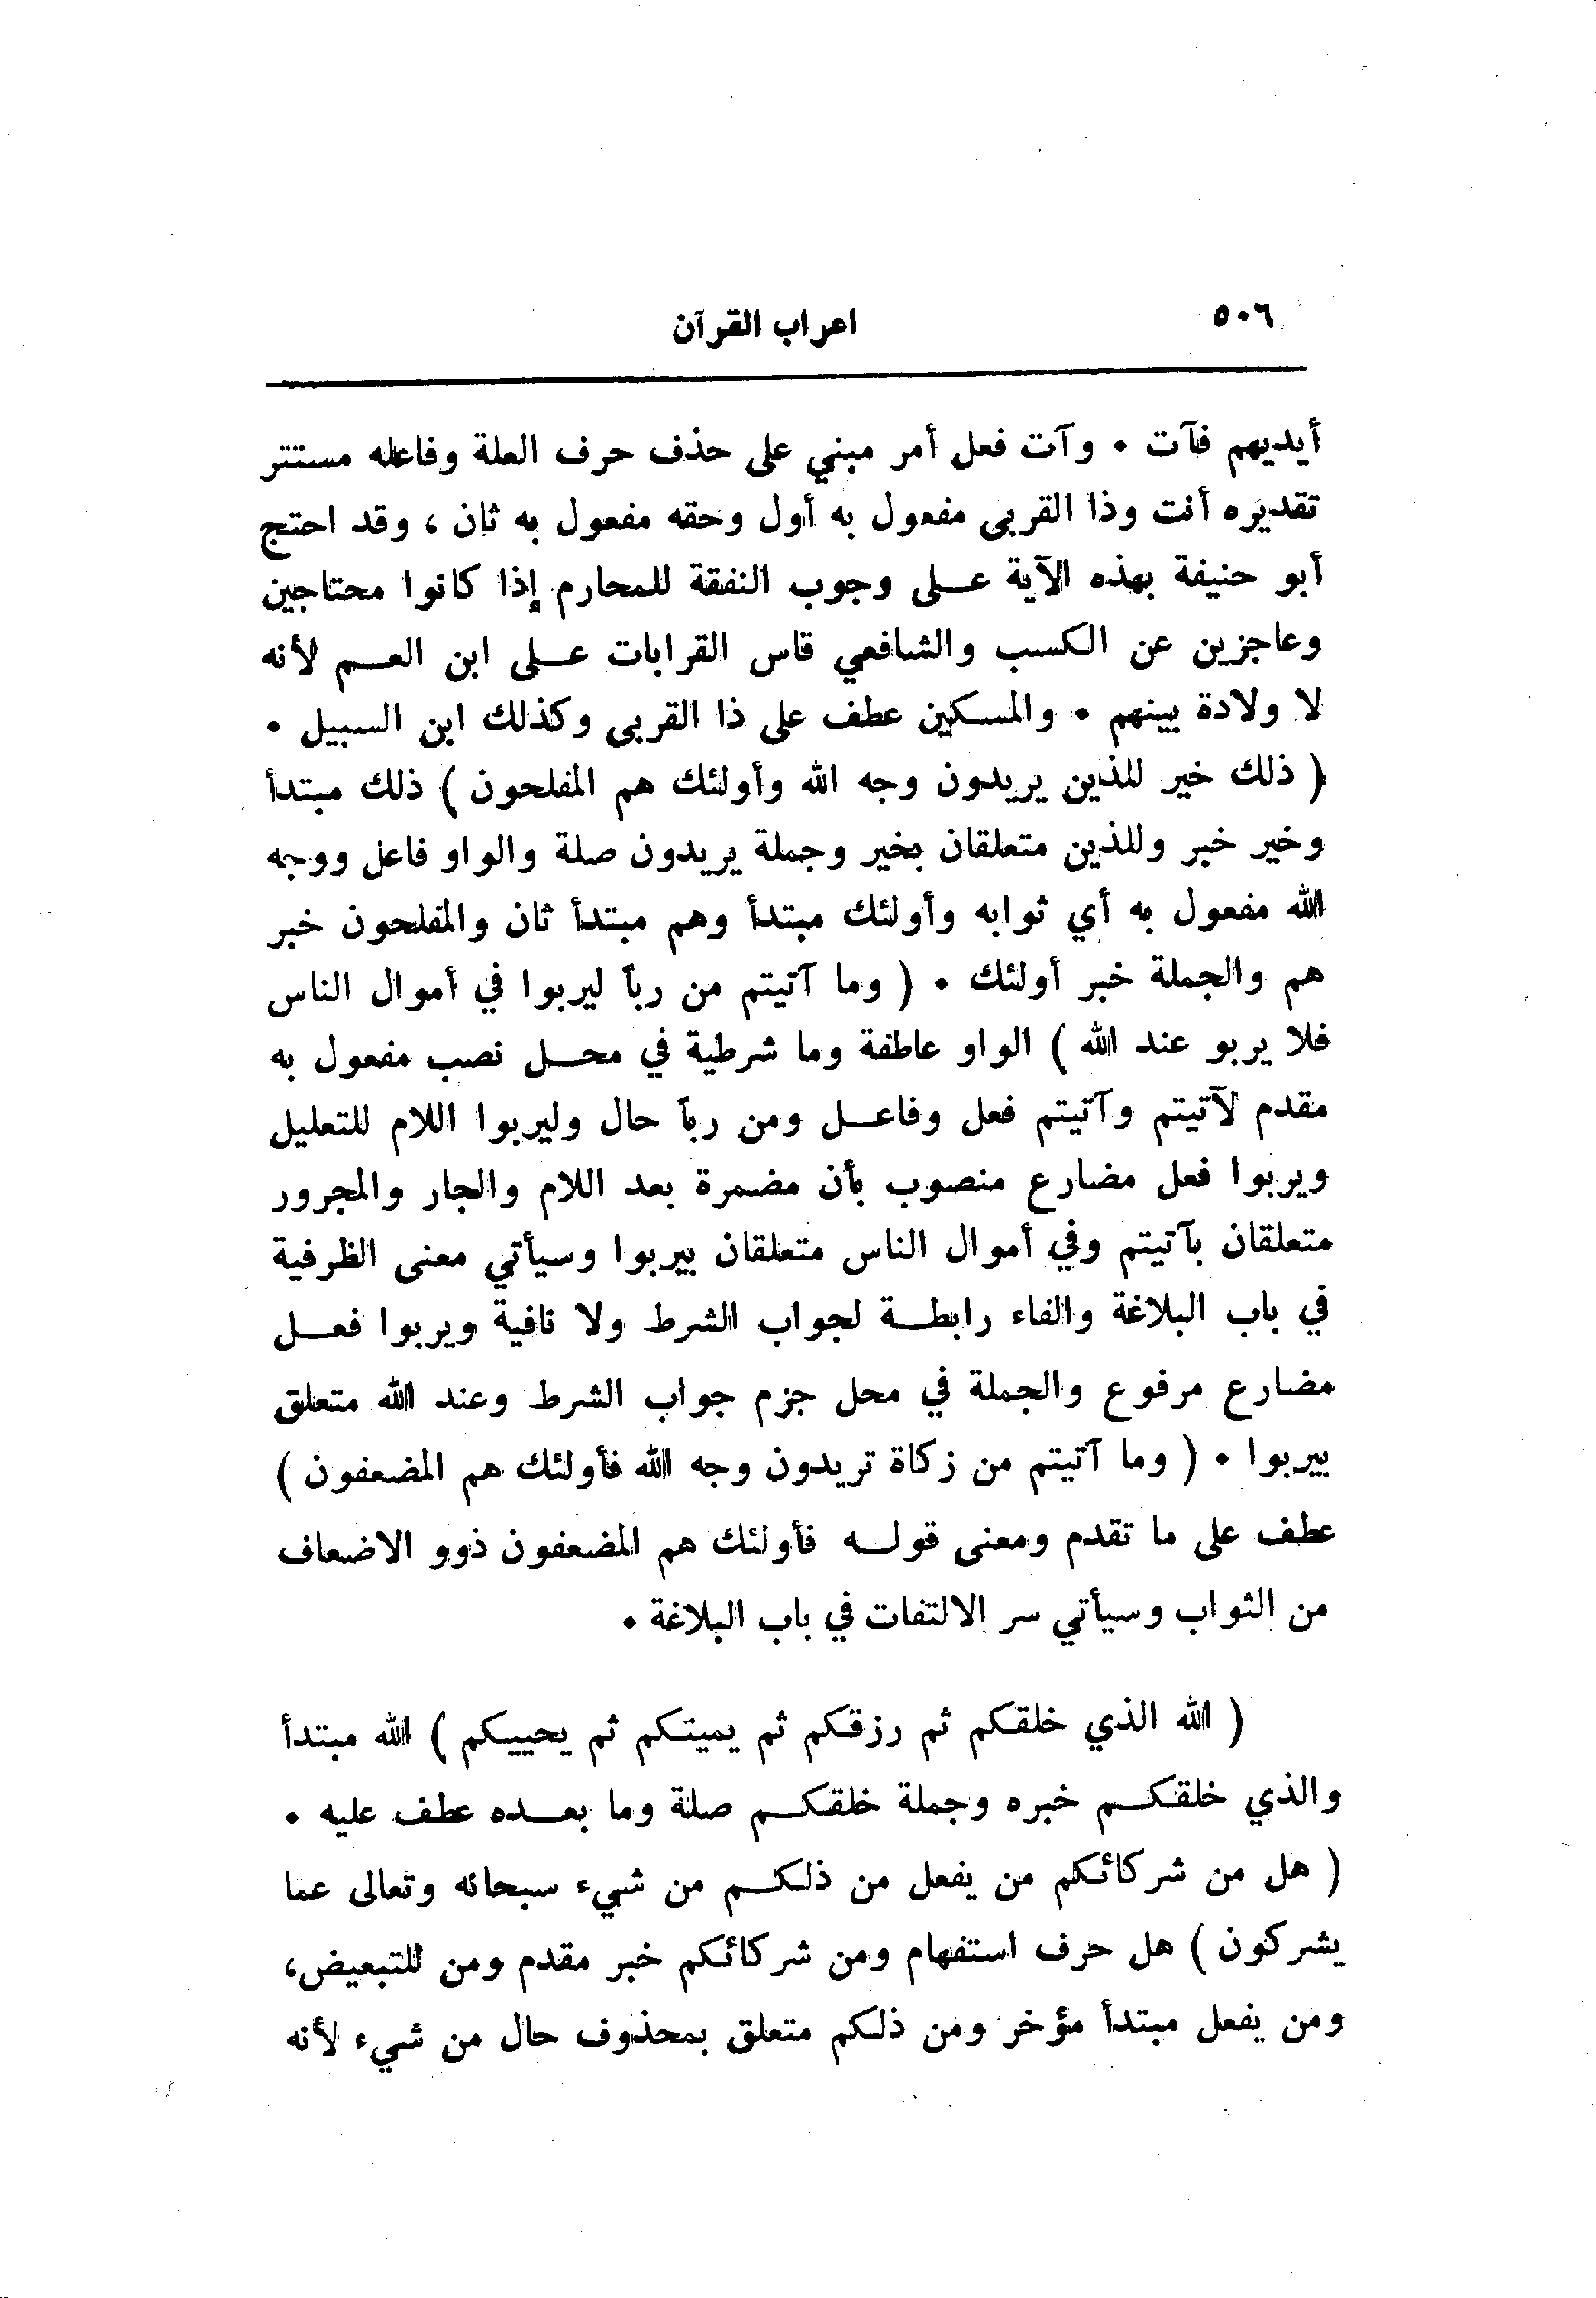 ٥٠٦
اعراب القرآن
أيديهم فآت ٠ وآت فعل أمر مبني على حذف حرف العلة وفاعله مستتر
تقديره أنت وذا القربى مفعول به أول وحقه مفعول به ثان ، وقد احتج
أبو حنيفة بهذه الآية عــلى وجوب النفقة للمحارم إذا كانوا محتاجين
وعاجزين عن الكسب والشافعي قاس القرابات عــلى ابن العــم لأنه
لا ولادة بينهم ٠ والمسكين عطف على ذا القربى وكذلك ابن السبيل ٠
( ذلك خير للذين يريدون وجه الله وأولئك هم المفلحون ) ذلك مبتدأ
وخير خبر وللذين متعلقان بخير وجملة يريدون صلة والواو فاعل ووجه
الله مفعول به أي ثوابه وأولئك مبتدأ وهم مبتدأ ثان والمفلحون خبر
هم والجملة خبر أولئك ٠ ( وما آتيتم من رباً ليربوا في أموال الناس
فلا يربو عند الله ) الواو عاطفة وما شرطية في محــل نصب مفعول به
مقدم لآتيتم وآتيتم فعل وفاعــل ومن رباً حال وليربوا اللام للتعليل
ويربوا فعل مضارع منصوب بأن مضمرة بعد اللام والجار والمجرور
متعلقان بآتيتم وفي أموال الناس متعلقان بيربوا وسيأتي معنى الظرفية
في باب البلاغة والفاء رابطــة لجواب الشرط ولا نافية ويربوا فعــل
مضارع مرفوع والجملة في محل جزم جواب الشرط وعند الله متعلق
بيربوا ٠ ( وما آتيتم من زكاة تريدون وجه الله فأولئك هم المضعفون )
عطف على ما تقدم ومعنى قولــه فأولئك هم المضعفون ذوو الاضعاف
من الثواب وسيأتي سر الالتفات في باب البلاغة ٠
( الله الذي خلقكم ثم رزقكم ثم يميتكم ثم يحييكم ) الله مبتدأ
والذي خلقكــم خبره وجملة خلقكــم صلة وما بعــده عطف عليه ٠
( هل من شركائكم من يفعل من ذلكــم من شيء سبحانه وتعالى عما
يشركون ) هل حرف استفهام ومن شركائكم خبر مقدم ومن للتبعيض،
ومن يفعل مبتدأ مؤخر ومن ذلكم متعلق بمحذوف حال من شيء لأنه